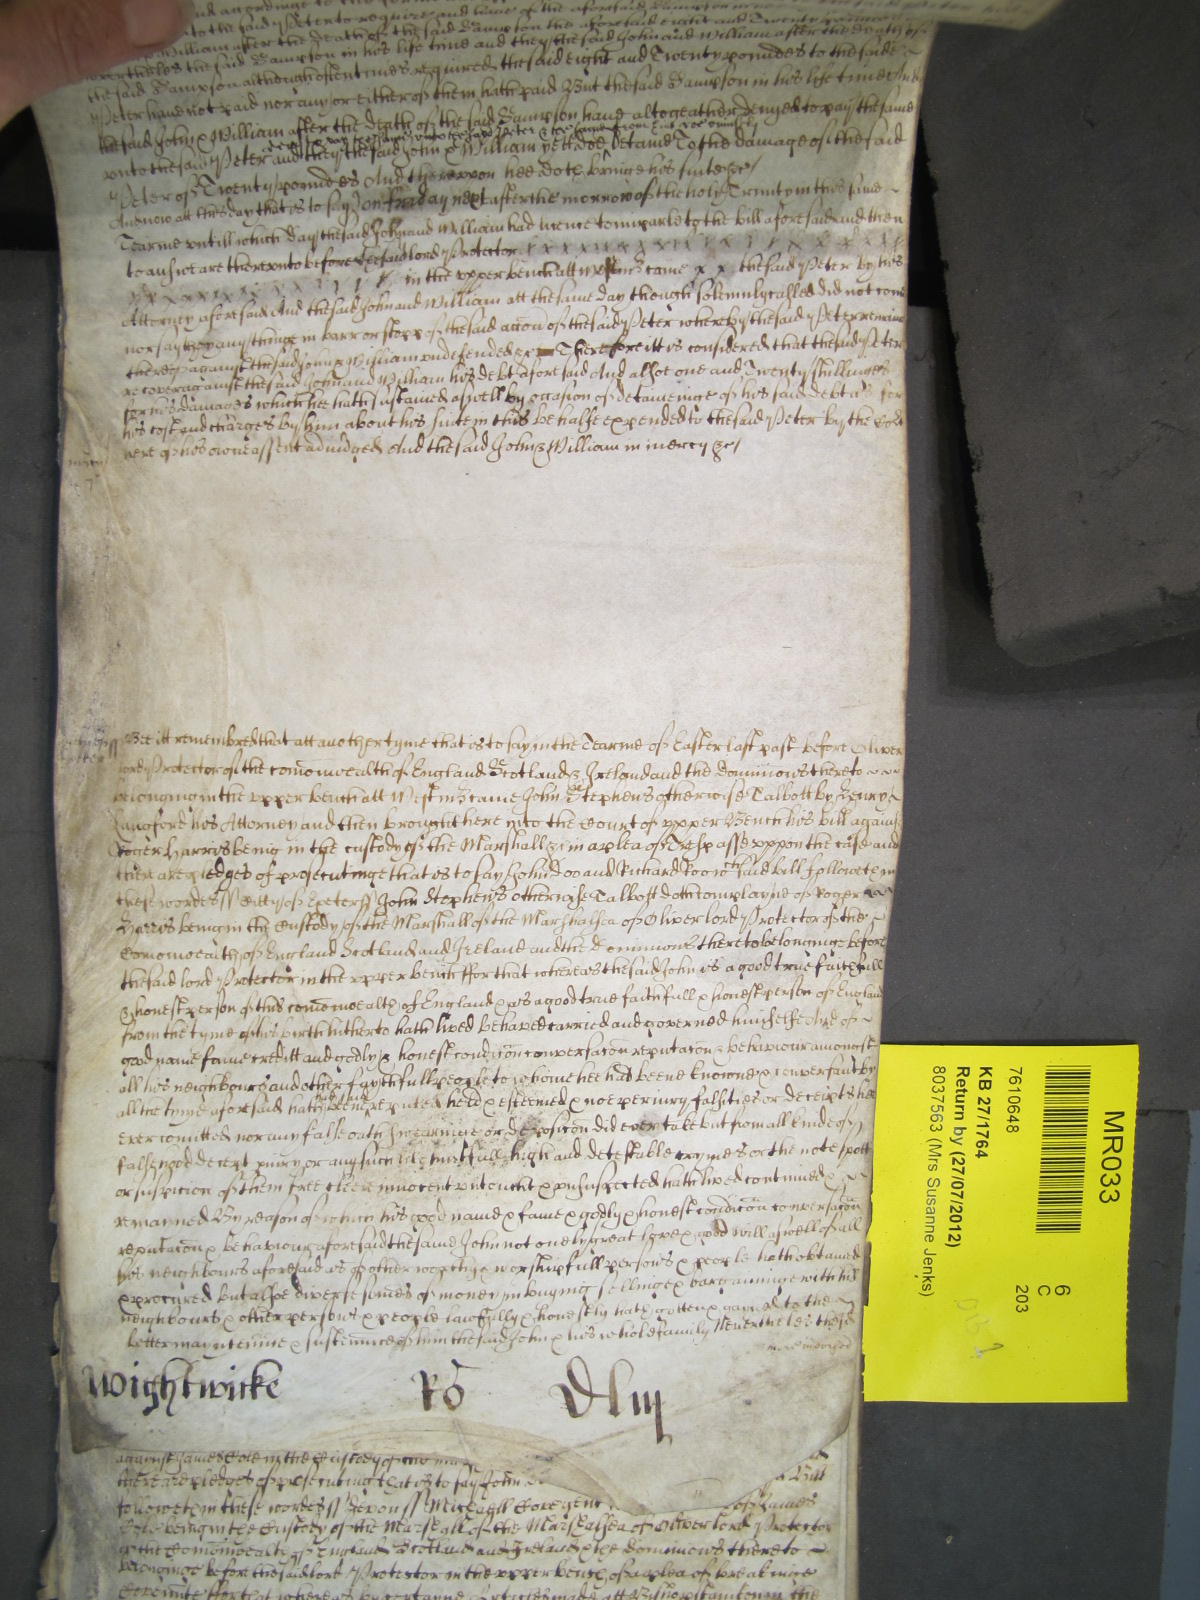 to the said Peter to require and have of the aforesaid Sampson the aforesaid eight and Twenty poundes
William after the death of the said Sampson the said John and William after the death of
the said Sampson in his life time and they the said John and William after the death of
the said Sampson although oftentimes required the said eight and Twenty poundes to the saide
Peter have not paid nor any or either of them hath paid But the said Sampson in his life time And
the said John & William after the death of the said Sampson have altogeather denyed to pay the same
unto the said Peter and they the said John & William yett doe detaine To the damage of the said
Peter of Twenty poundes And thereupon hee doth bringe his suite &c/
And now att this day that is to say on Friday next after the morrow of the holy Trinity in this same
Tearme untill which day the said John and William had licence to imparle to the bill aforesaid and then
to answeare thereunto before the said lord Protector x x x x x x x x x x x x x x x
x x x x x x x x x in the upper bench att Westmr came x x the said Peter by his
Attorney aforesaid And the said John and William att the same day though solemnly called did not come
nor say they any thinge in barr or stopp of the said accon of the said Peter whereby the said Peter
thereof against the said John & William undefended &c Therefore itt is considered that the said Peter
recover against the said John and William his debt aforesaid And alsoe one and Twenty shillinges
for his damages which hee hath sustained aswell by occasion of deteininge of his said debt as for
his costs and charges by him about his suite in this behalfe expended to the said Peter by the Court
here of his owne assent adiudged And the said John & William in mercy &c/
mercy
Bee itt remembred that att another tyme that is to say in the Tearme of Easter last past before Oliver
lord Protector of the comonwealth of England Scotland & Ireland and the dominions thereto
belonging in the upper bench att Westmr came John Stephens otherwise Talbott by Henry
Langford his Attorney and then brought here into the Court of upper Bench his bill against
Roger Harris being in the custody of the Marshall &c in a plea of Trespasse uppon the case and
there are pledges of prosecutinge that is to say John Doo and Richard Roo wch said bill followeth in
these wordes ss Citty of Exeter ss John Stephens otherwise Talbott doth complayne of Roger
Harris being in the Custody of the Marshall of the Marshalsea of Oliver lord Protector of the
Comonwealth of England Scotland and Ireland and the dominions thereto belonginge before
the said lord Protector in the upper bench ffor that whereas the said John is a good true faithfull
& honest person of this comonwealth of England & as a good true faithfull & honest person of England
from the tyme of his birth hitherto hath lived behaved carried and governed himselfe And of
good name fame creditt and godly & honest condicon conversacon reputacon & behaviour amongst
all his neighbours and other faythfull people to whome hee had beene knowne & conversant by
all the tyme aforesaid hath beene reputed held & esteemed & noe periury falsities or deceipts hee
ever comitted nor any false oath swearinge or deposicon did ever take but from all kinde of
falsehood deceit piury or any such like hurtfull high and detestable crymes or the note spott
or suspicion of them free cleere innocent untoucht & unsuspected hath lived continued &
remained By reason of which his good name & fame & godly & honest condicon conversacon
reputacon & behaviour aforesaid the same John not onely great love & good will aswell of all
his neighbours aforesaid as of other worthy & worshipfull persons & people hath obtained
& procured but alsoe diverse somes of money in buying sellinge & bargaininge with his
neighbours & other persons & people lawfully & honestly hath gotten & gayned to the
better maynteninge & sustenance of him the said John & his whole family Neverthelesse the said
Wightwicke Ro Dliiij
against James Cole in the Custody of the
there are pledges of prosecuting that is to say John
followeth in these wordes ss Devon ss Michaell gent
Cole being in the Custody of the Marshall of the Marshalsea of Oliver lord Protector
of the Comonwealth of England Scotland and Ireland & the dominions thereto
belonginge before the said lord Protector in the upper bench of a plea of breakinge
MR033
6
C
203
7610648
KB 27/1764
Return by (27/07/2012)
8037563 (Mrs Susanne Jenks)